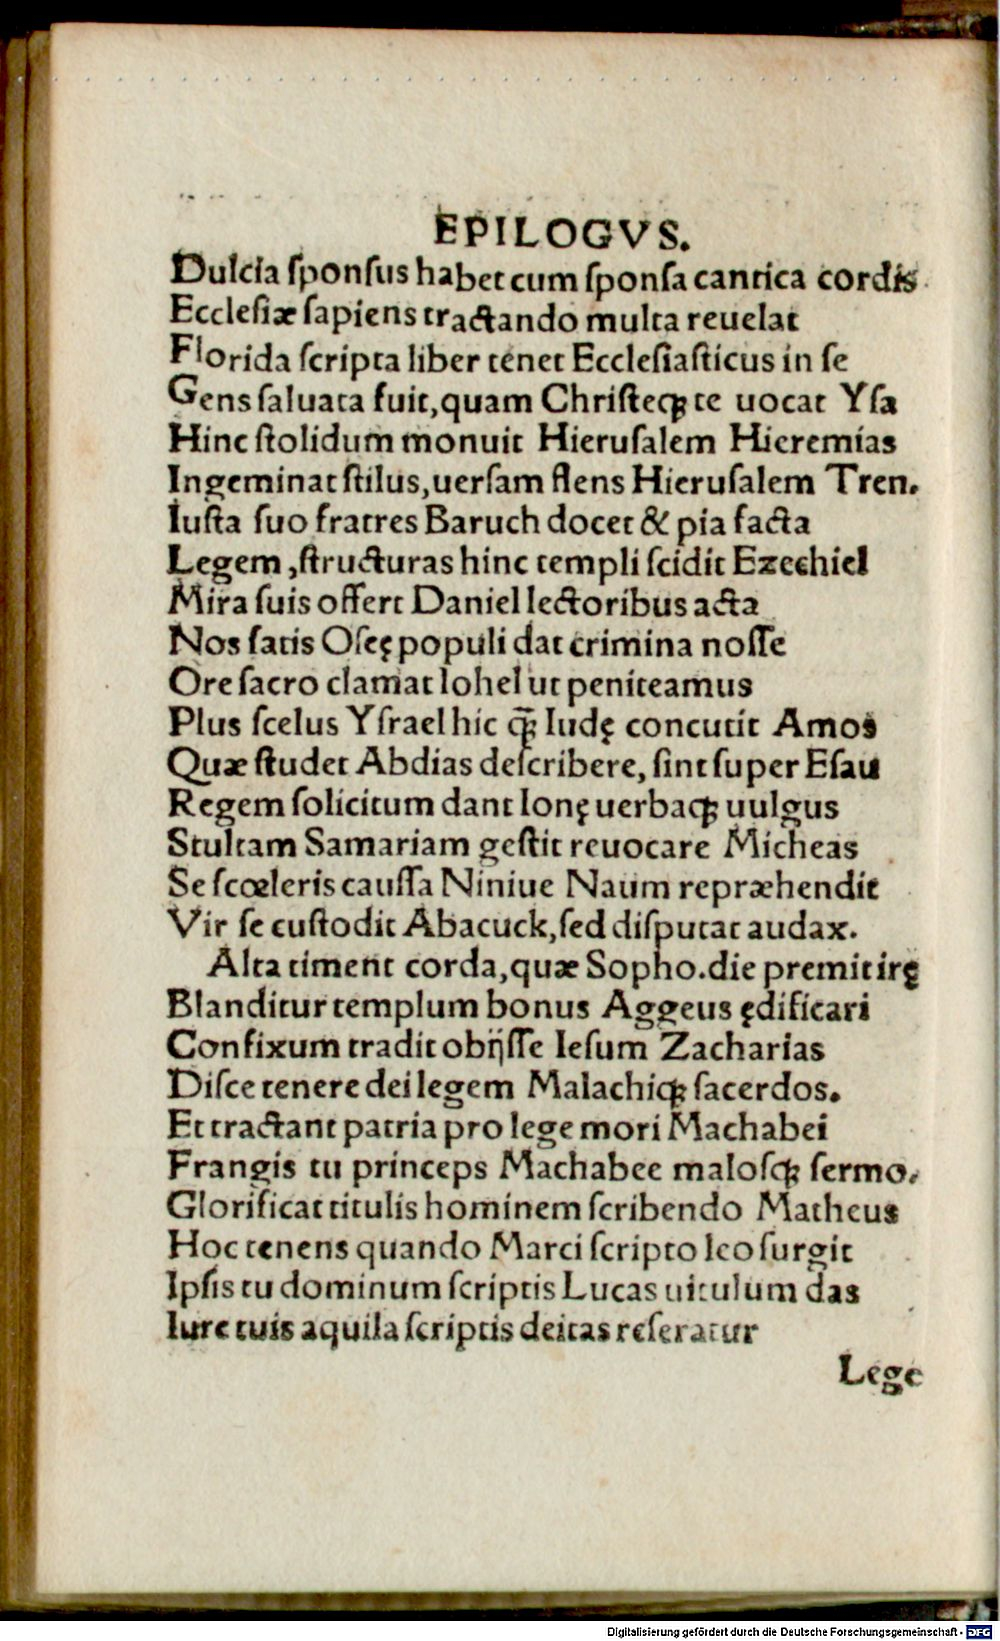 EPILOGVS.
Dulcia ſponſus habet cum ſponſa cantica cordis
Eccleſiæ ſapiens tractando multa reuelat
Florida ſcripta liber tenet Eccleſiaſticus in ſe
Gens ſaluata fuit, quam Chriſteꝗ te uocat Yſa
Hinc ſtolidum monuit Hieruſalem Hieremias
Ingeminat ſtilus, uerſam flens Hieruſalem Tren.
Iuſta ſuo fratres Baruch docet & pia facta
Legem, ſtructuras hinc templi ſcidit Ezechiel
Mira ſuis offert Daniel lectoribus acta
Nos ſatis Oſeę populi dat crimina noſſe
Ore ſacro clamat Iohel ut peniteamus
Plus ſcelus Yſrael hic ꝗ̃ Iudę concutit Amos
Quæ ſtudet Abdias deſcribere, ſint ſuper Eſau
Regem ſolicitum dant Ionę uerbaꝗ uulgus
Stultam Samariam geſtit reuocare Micheas
Se ſcœleris cauſſa Niniue Naum repræhendit
Vir ſe cuſtodit Abacuck, ſed diſputat audax.
Alta timent corda, quæ Sopho. die premit irę
Blanditur templum bonus Aggeus ędificari
Confixum tradit obijſſe Ieſum Zacharias
Diſce tenere dei legem Malachiꝗ ſacerdos.
Et tractant patria pro lege mori Machabei
Frangis tu princeps Machabee maloſꝗ ſermo.
Glorificat titulis hominem ſcribendo Matheus
Hoc tenens quando Marci ſcripto leo ſurgit
Ipſis tu dominum ſcriptis Lucas uitulum das
Iure tuis aquila ſcriptis deitas reſeratur
Lege
Digitalisierung gefördert durch die Deutsche Forschungsgemeinschaft - DFG